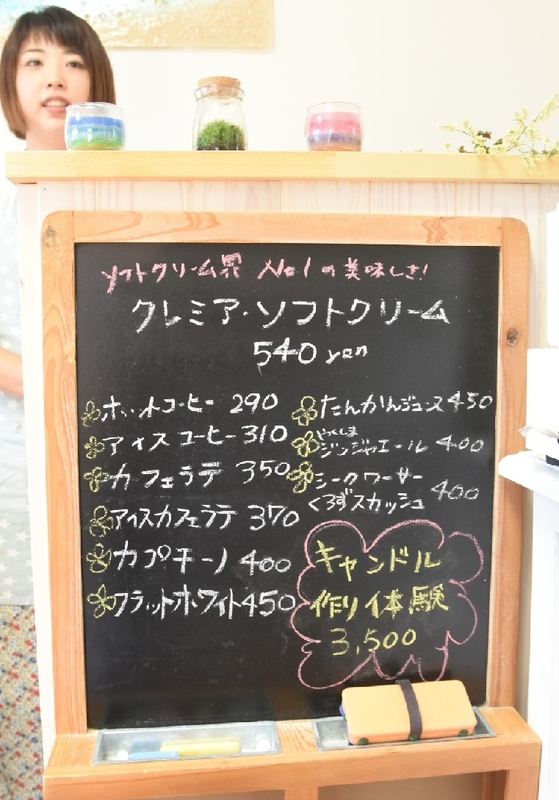 ソフトクリーム界 No.1の美味しさ!
クレミア・ソフトクリーム
540 yen
ホットコーヒー 290
アイスコーヒー 310
カフェラテ 350
アイスカフェラテ 370
カプチーノ 400
フラットホワイト 450
たんかんジュース 450
やくしま
ジンジャエール 400
シークワーサー
くろずスカッシュ 400
キャンドル
作り体験
3,500